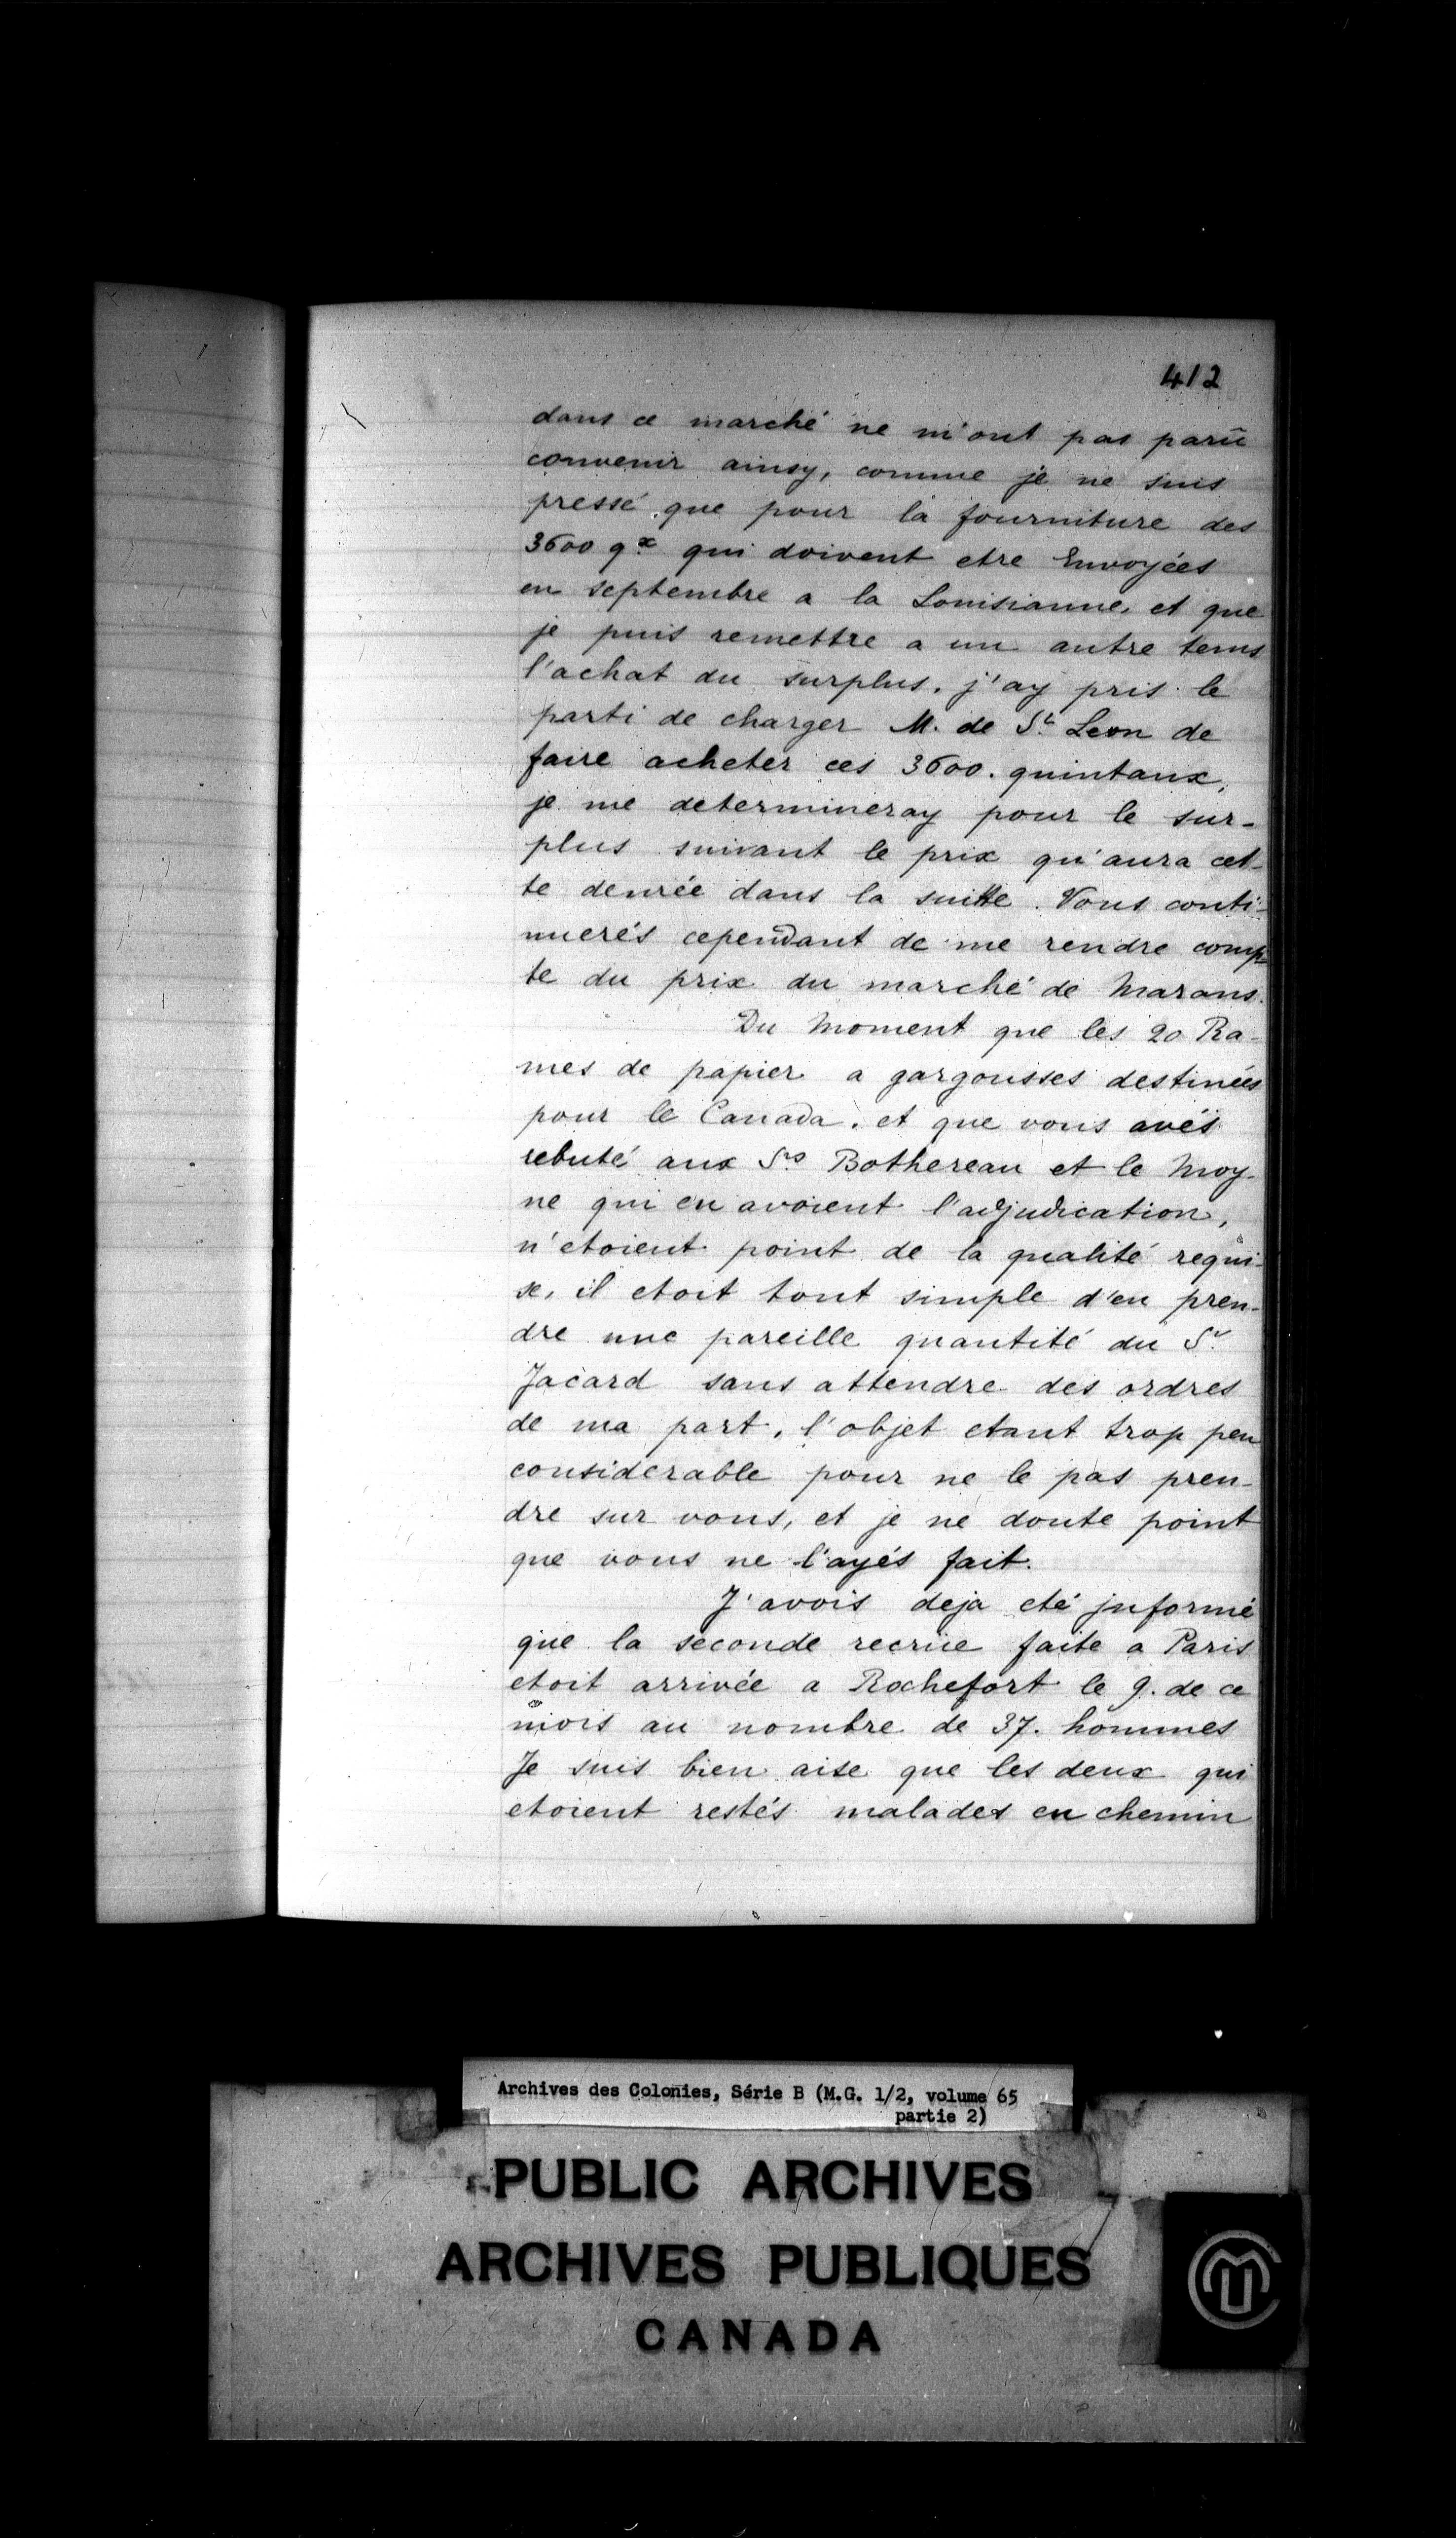 412
dans ce marché ne m'ont pas parû
convenir ainsy, comme je ne suis
pressé que pour la fourniture des
3600 qx qui doivent etre Envoyées
en septembre a la Louisianne, et que
je puis remettre a un autre tems
l'achat du surplus, j'ay pris le
parti de charger M. de St Leon de
faire acheter ces 3600. quintaux,
je me determineray pour le sur-
plus suivant le prix qu'aura cet-
te denrée dans la suitte. Vous conti-
nuerés cependant de me rendre comp-
te du prix du marché de Marans.
Du Moment que les 20 Ra-
mes de papier a gargousses destinées
pour le Canada, et que vous avés
rebuté aux Srs Bothereau et le Moy-
ne qui en avoient l'adjudication,
n'etoient point de la qualité requi-
se, il etoit tout simple d'en pren-
dre une pareille quantité du Sr
Jacard sans attendre des ordres
de ma part, l'objet etant trop peu
considerable pour ne le pas pren-
dre sur vous, et je ne doute point
que vous ne l'ayés fait.
J'avois deja eté jnformé
que la seconde recrüe faite a Paris
etoit arrivée a Rochefort le 9. de ce
mois au nombre de 37. hommes
Je suis bien aise que les deux qui
etoient restés malades en chemin
Archives des Colonies, Série B (M.G. 1/2, volume 65
partie 2)
PUBLIC ARCHIVES
ARCHIVES PUBLIQUES
CANADA